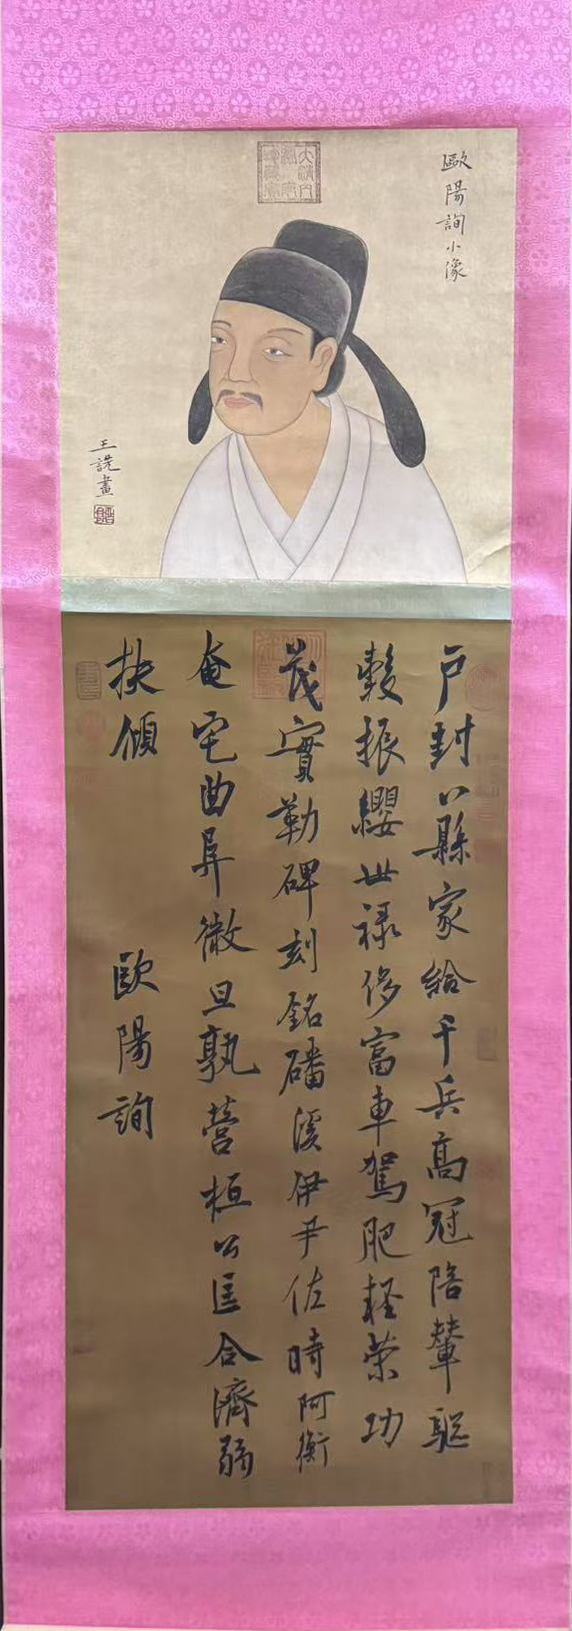 歐陽詢小像
王詵畫
戶封八縣家給千兵高冠陪輦驅
轂振纓世祿侈富車駕肥輕榮功
茂實勒碑刻銘磻溪伊尹佐時阿衡
奄宅曲阜微旦孰營桓公匡合濟弱
扶傾
歐陽詢